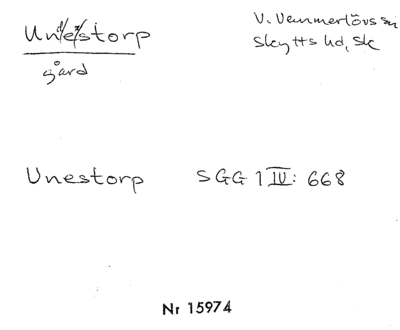 Un/e/storp
V. Vemmerlövs sn
gård
Skytts hd, Sk
Unestorp SGG 1 IV: 668
Nr 15974